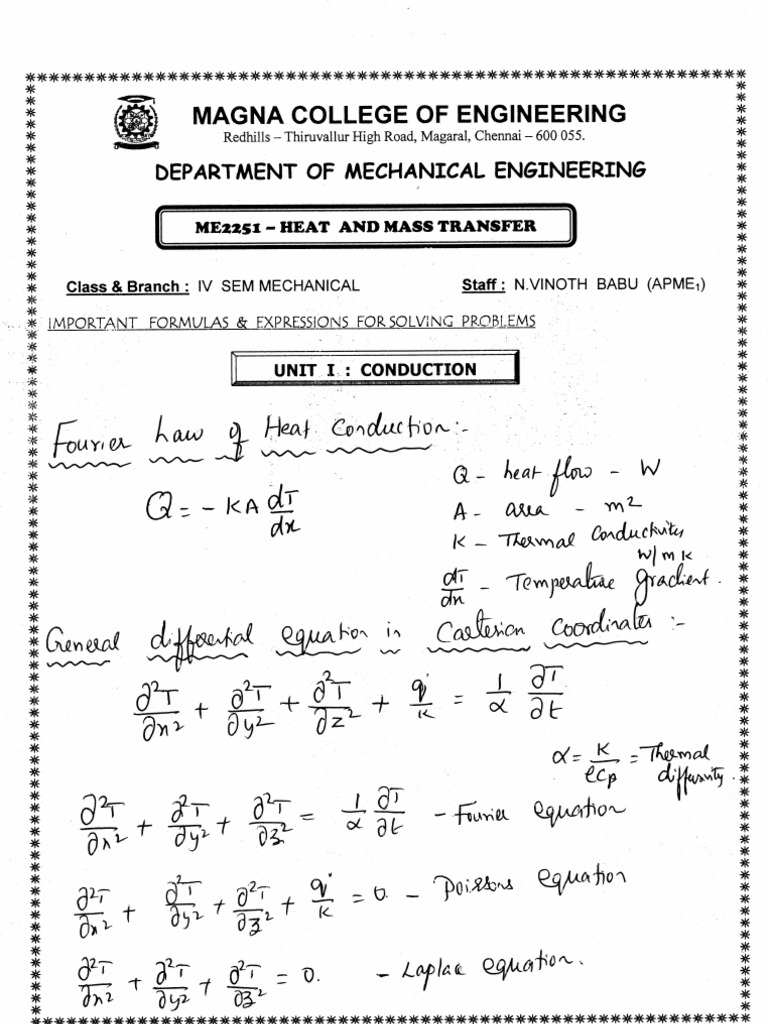 MAGNA COLLEGE OF ENGINEERING
Redhills – Thiruvallur High Road, Magaral, Chennai – 600 055.
DEPARTMENT OF MECHANICAL ENGINEERING
ME2251 – HEAT AND MASS TRANSFER
Class & Branch : IV SEM MECHANICAL Staff : N.VINOTH BABU (APME₁)
IMPORTANT FORMULAS & EXPRESSIONS FOR SOLVING PROBLEMS
UNIT I : CONDUCTION
Fourier Law of Heat Conduction:-
Q = - KA dT/dx
Q - heat flow - W
A - area - m²
K - Thermal Conductivity
W/mK
dT/dx - Temperature gradient.
General differential equation in Cartesian Coordinates :-
∂²T/∂x² + ∂²T/∂y² + ∂²T/∂z² + q̇/K = 1/α ∂T/∂t
α = K/ρCp = Thermal
diffusivity.
∂²T/∂x² + ∂²T/∂y² + ∂²T/∂z² = 1/α ∂T/∂t - Fourier equation
∂²T/∂x² + ∂²T/∂y² + ∂²T/∂z² + q̇/K = 0. - Poissons equation
∂²T/∂x² + ∂²T/∂y² + ∂²T/∂z² = 0. - Laplac equation.